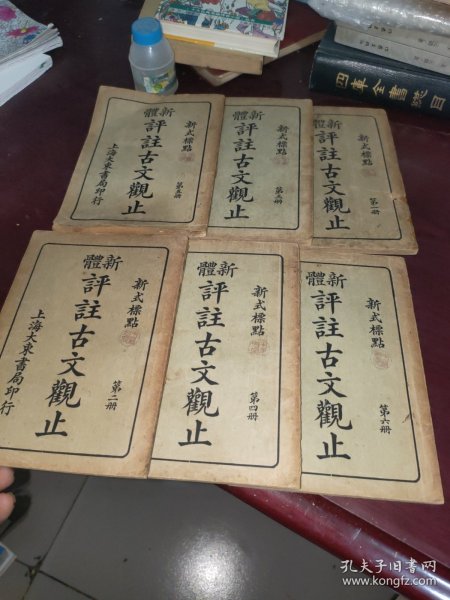 四庫全書總目
新體
評註古文觀止
新式標點
第五册
上海大東書局印行
新體
評註古文觀止
新式標點
新體
評註古文觀止
新式標點
第一册
新體
評註古文觀止
新式標點
第二册
上海大東書局印行
新體
評註古文觀止
新式標點
第四册
新體
評註古文觀止
新式標點
第六册
孔夫子旧书网
www.kongfz.com